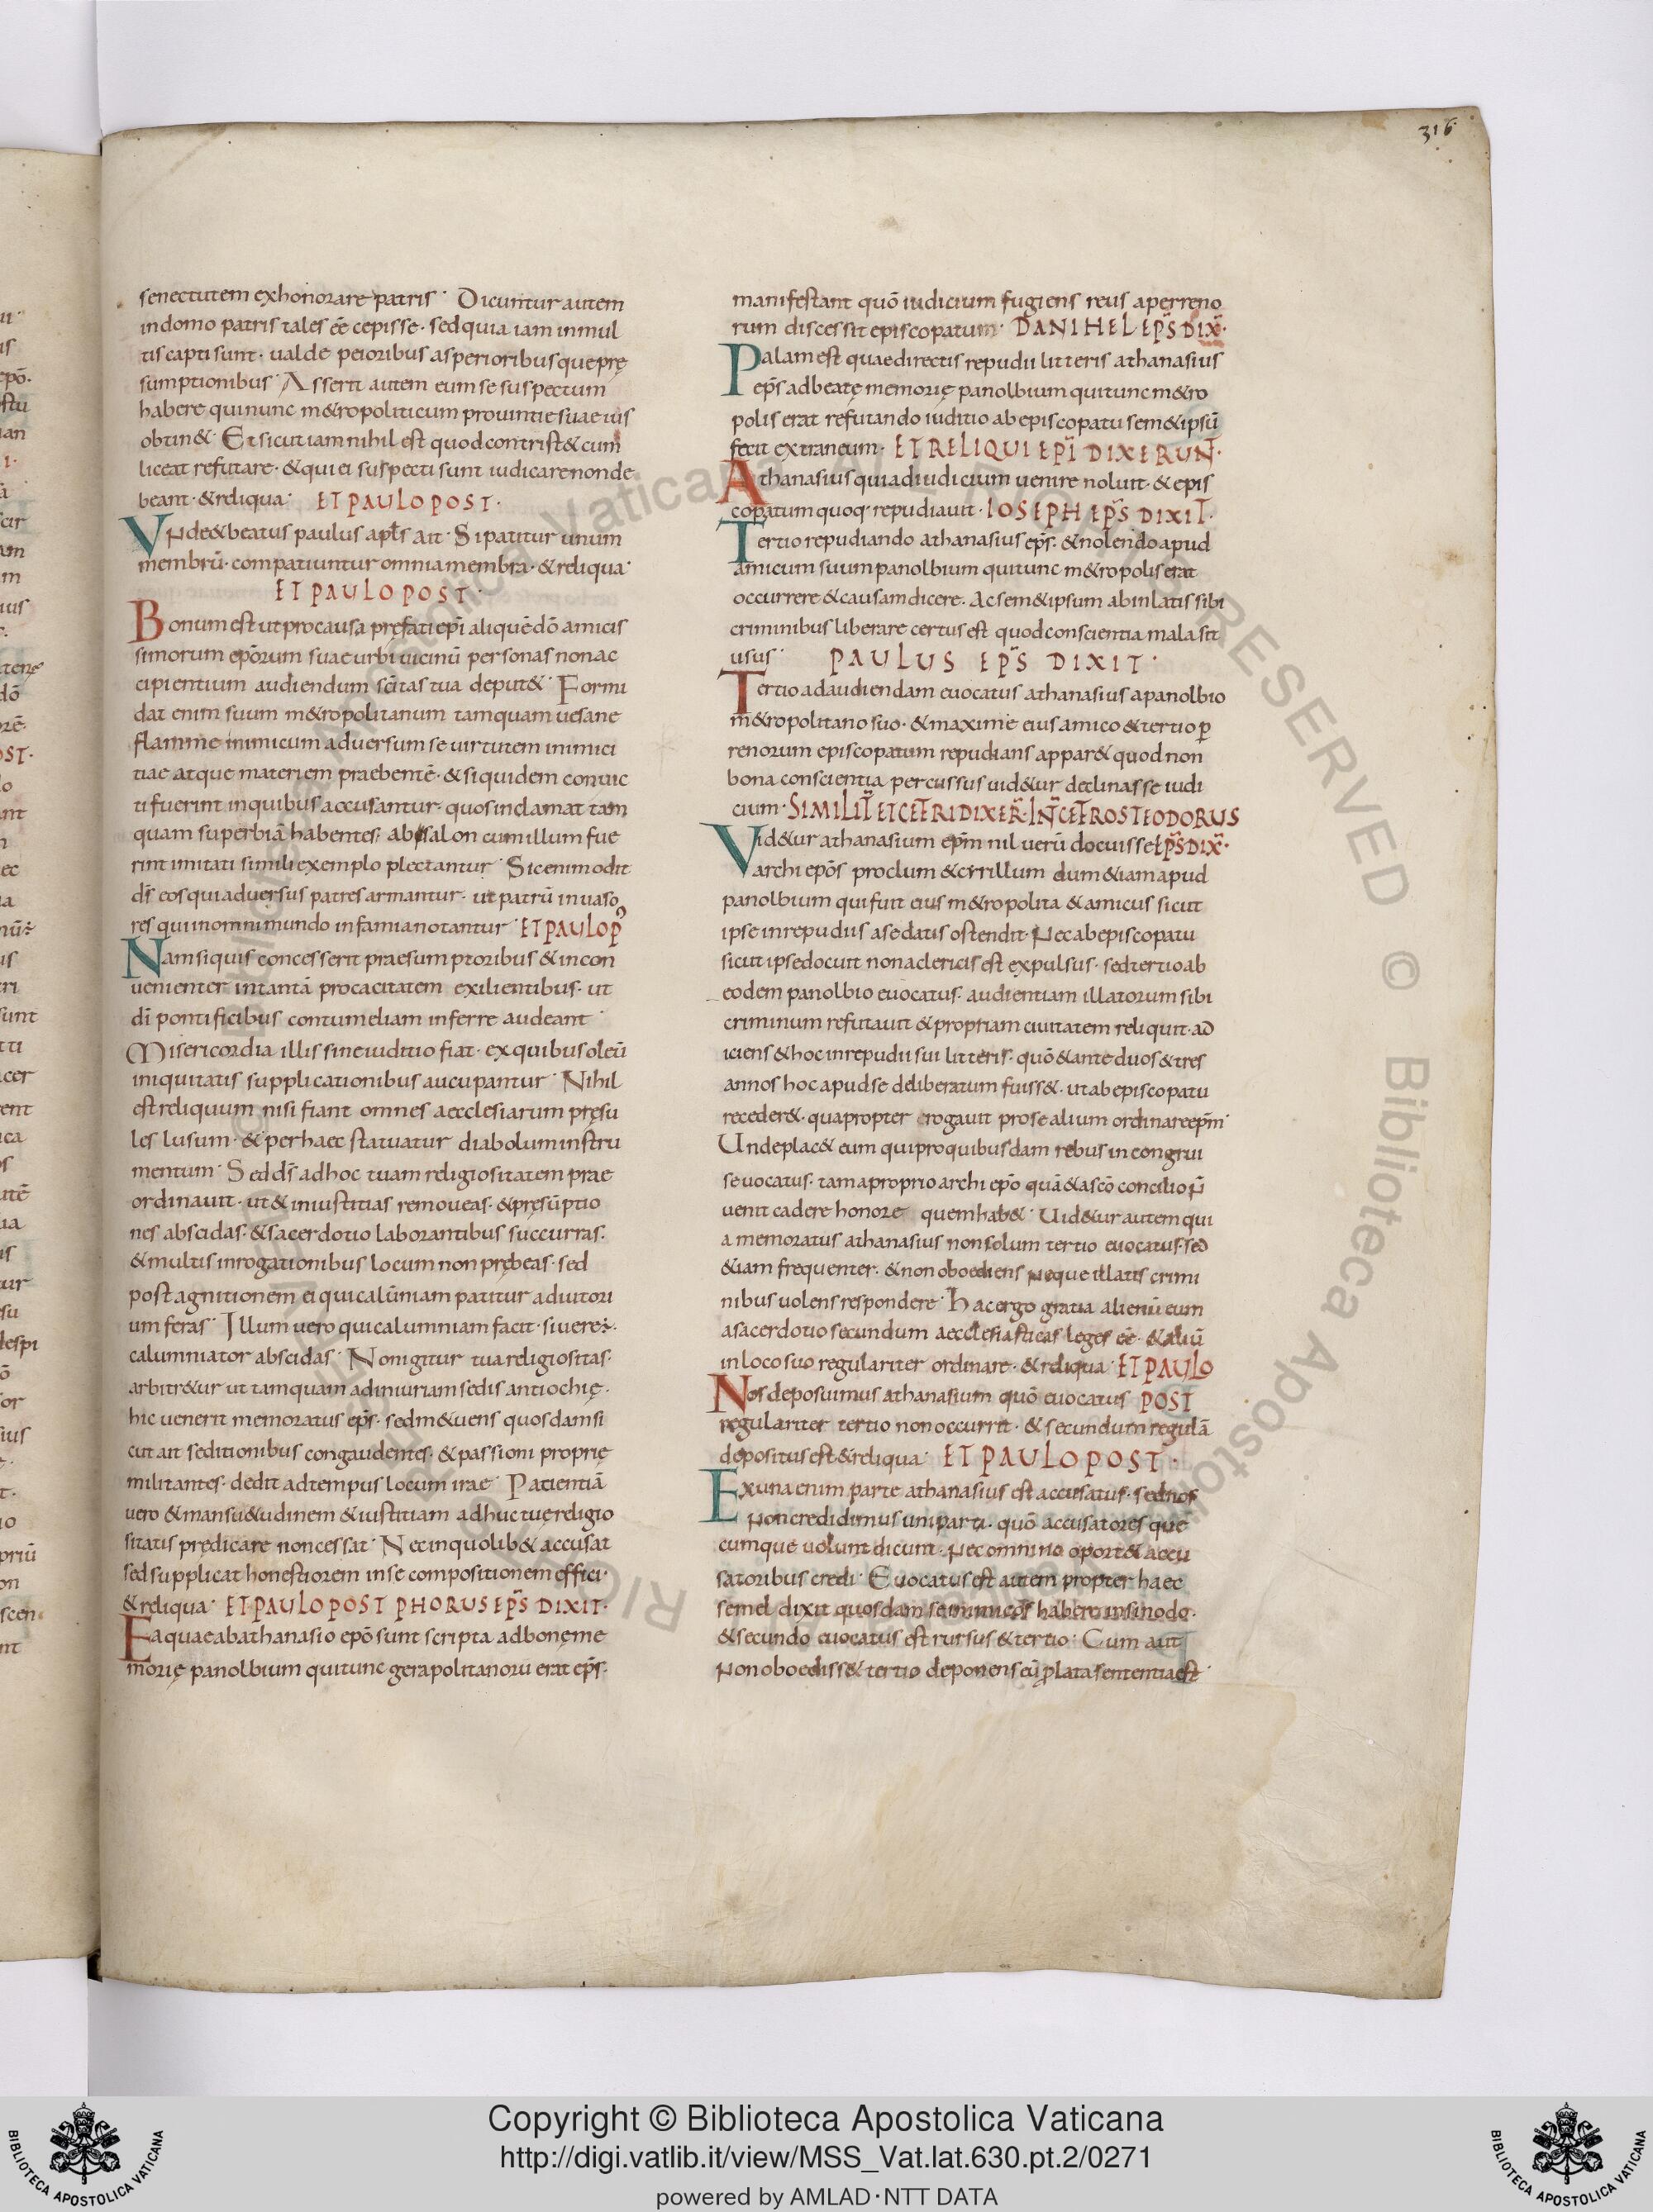 316
senectutem exhonorare patris· Dicuntur autem
in domo patris tales eē cepisse· sed quia iam in mul
tis capti sunt· ualde peioribus asperioribusque pre̜
sumptionibus· Asserit autem eum se suspectum
habere qui nunc m&ropoliticum prouintie suae ius
obtin&· Et sicut iam nihil est quod contrist& cum
liceat refutare· & qui ei suspecti sunt iudicare non de
beant· & reliqua· ET PAULO POST·
Vnde & beatus paulus apl̄s ait· Si patitur unum
membrū· compatiuntur omnia membra· & reliqua·
ET PAULO POST·
Bonum est ut pro causa pre̜fati ep̄i aliquē dō amicis
simorum ep̄orum suae urbi uicinū personas non ac
cipientium audiendum sc̄itas tua deput&· Formi
dat enim suum m&ropolitanum tamquam uesane
flamme inimicum aduersum se uirtutem inimici
tiae atque materiem praebentē· & siquidem conuic
ti fuerint in quibus accusantur· quos inclamat tam
quam superbiā habentes· abssalon cum illum fue
rint imitati simili exemplo plectantur· Sic enim odit
dr̄ eos qui aduersus patres armantur· ut patrū inuaso
res qui in omni mundo infamia notantur· ET PAULO P
Nam si quis concesserit praesumptoribus & incon
uenienter in tantā procacitatem exilientibus· ut
dī pontificibus contumeliam inferre audeant·
Misericordia illis sine iuditio fiat· ex quibus oleū
iniquitatis supplicationibus aucupantur· Nihil
est reliquum nisi fiant omnes aecclesiarum pre̜su
les lusum· & per haec statuatur diabolum instru
mentum· Sed d̄s ad hoc tuam religiositatem prae
ordinauit· ut & iniustitias remoueas· & pre̜sūptio
nes abscidas· & sacerdotio laborantibus succurras·
& multis inrogationibus locum non pre̜beas· sed
post agnitionem ei qui calūniam patitur adiutori
um feras· Illum uero qui calumniam facit· si uere÷
calumniator abscidas· Non igitur tua religiositas·
arbitr&ur ut tamquam ad iniuriam sedis antiochie̜·
hic uenerit memoratus ep̄s· sed m&uens quosdam si
cut ait seditionibus congaudentes· & passioni proprie̜
militantes· dedit ad tempus locum irae· Patientiā
uero & mansu&udinem & iustitiam adhuc tue̜ religio
sitatis pre̜dicare non cessat· Nec in quolib& accusat
sed supplicat honestiorem in se compositionem effici·
& reliqua· ET PAULO POST PHORUS EP̄S DIXIT·
Ea quae ab athanasio ep̄o sunt scripta ad bone̜ me
morie̜ panolbium qui tunc gerapolitanorū erat ep̄s·
manifestant quō iudicium fugiens reus a perreno
rum discessit episcopatum· DANIHEL EP̄S DIX̄·
Palam est quae directis repudii litteris athanasius
ep̄s ad beate̜ memorie̜ panolbium qui tunc m&ro
polis erat refutando iuditio ab episcopatu sem&ipsū
fecit extraneum· ET RELIQUI EP̄I DIXERUNT·
Athanasius quia ad iudicium uenire noluit· & epis
copatum quoq· repudiauit· IOSEPH EP̄S DIXIT·
Tertio repudiando athanasius ep̄s· & nolendo apud
amicum suum panolbium qui tunc m&ropolis erat
occurrere & causam dicere· Ac sem&ipsum ab inlatis sibi
criminibus liberare certus est quod conscientia mala sit
usus· PAULUS EP̄S DIXIT·
Tertio ad audiendam euocatus athanasius a panolbio
m&ropolitano suo· & maxime eius amico & tertio ꝑ
renorum episcopatum repudians appar& quod non
bona conscientia percussus uid&ur declinasse iudi
cium· SIMILIT̄ ET CET̄RI DIXER̄· INT̄ CET̄ROS TEODORUS
Vid&ur athanasium ep̄m nil uerū docuisse EP̄S DIX̄·
archi ep̄os proclum & cirillum dum &iam apud
panolbium qui fuit eius m&ropolita & amicus sicut
ipse in repudiis a se datis ostendit· Nec ab episcopatu
sicut ipse docuit non a clericis est expulsus· sed tertio ab
eodem panolbio euocatus· audientiam illatorum sibi
criminum refutauit & propriam ciuitatem reliquit· ad
iciens & hoc in repudii sui litteris· quō & ante duos & tres
annos hoc apud se deliberatum fuiss&· ut ab episcopatu
receder&· quapropter erogauit pro se alium ordinare ep̄m·
Unde plac& eum qui pro quibusdam rebus incongrui
se uocatus· tam a proprio archi ep̄o quā & a sc̄o concilio n̄
uenit cadere honore quem hab&· Uid&ur autem qui
a memoratus athanasius non solum tertio euocatus· sed
&iam frequenter· & non oboediens neque illatis crimi
nibus uolens respondere· hac ergo gratia alienū eum
a sacerdotio secundum aecclesiasticas leges eē· & aliū
in loco suo regulariter ordinare· & reliqua· ET PAULO
Nos deposuimus athanasium quō euocatus POST
regulariter tertio non occurrit· & secundum regulā
depositus est & reliqua· ET PAULO POST·
Ex una enim parte athanasius est accusatus· sed nos
Non credidimus uni parti· quō accusatores que
cumque uolunt dicunt· Nec omnino oport& accu
satoribus credi· Euocatus est autem propter haec
semel dixit quosdam se inimicos habere in sinodo·
& secundo euocatus est rursus & tertio· Cum aut̄
Non oboediss& tertio deponens eū ꝓlata sententia est·
Copyright © Biblioteca Apostolica Vaticana
http://digi.vatlib.it/view/MSS_Vat.lat.630.pt.2/0271
powered by AMLAD·NTT DATA
BIBLIOTECA APOSTOLICA VATICANA
BIBLIOTECA APOSTOLICA VATICANA